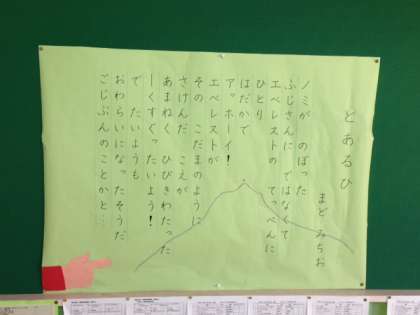 とあるひ
まど みちお
ノミが のぼった
ふじさんに ではなくて
エベレストの てっぺんに
ひとり
はだかで
ア、ホーイ!
エベレストが
その こだまのように
さけんだ こえが
あまねく ひびきわたった
―くすぐったいよう!
で たいようも
おわらいになったそうだ
ごじぶんのことかと…